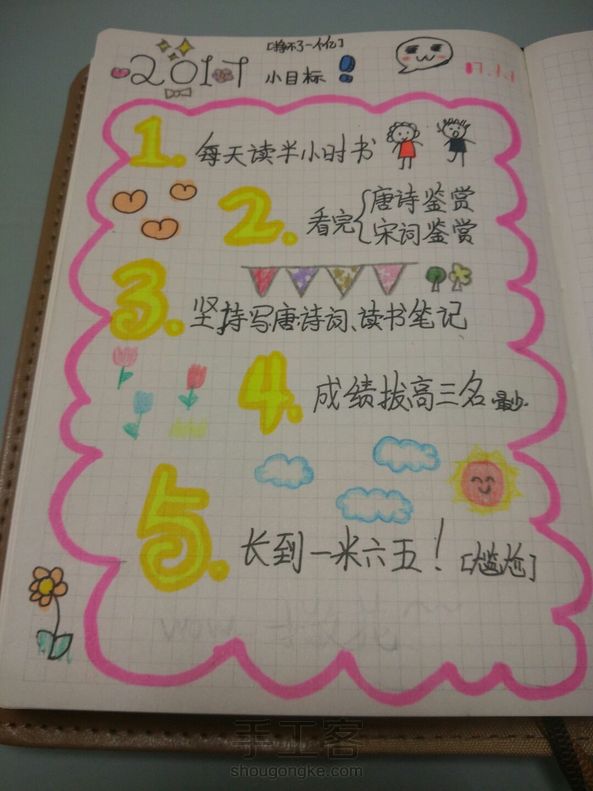 [挣不了一个亿]
2017 小目标!
17.1.1
1. 每天读半小时书
2. 看完{唐诗鉴赏
宋词鉴赏
3. 坚持写唐诗词、读书笔记
4. 成绩拔高三名 最少.
5. 长到一米六五! [尴尬]
手工客
shougongke.com